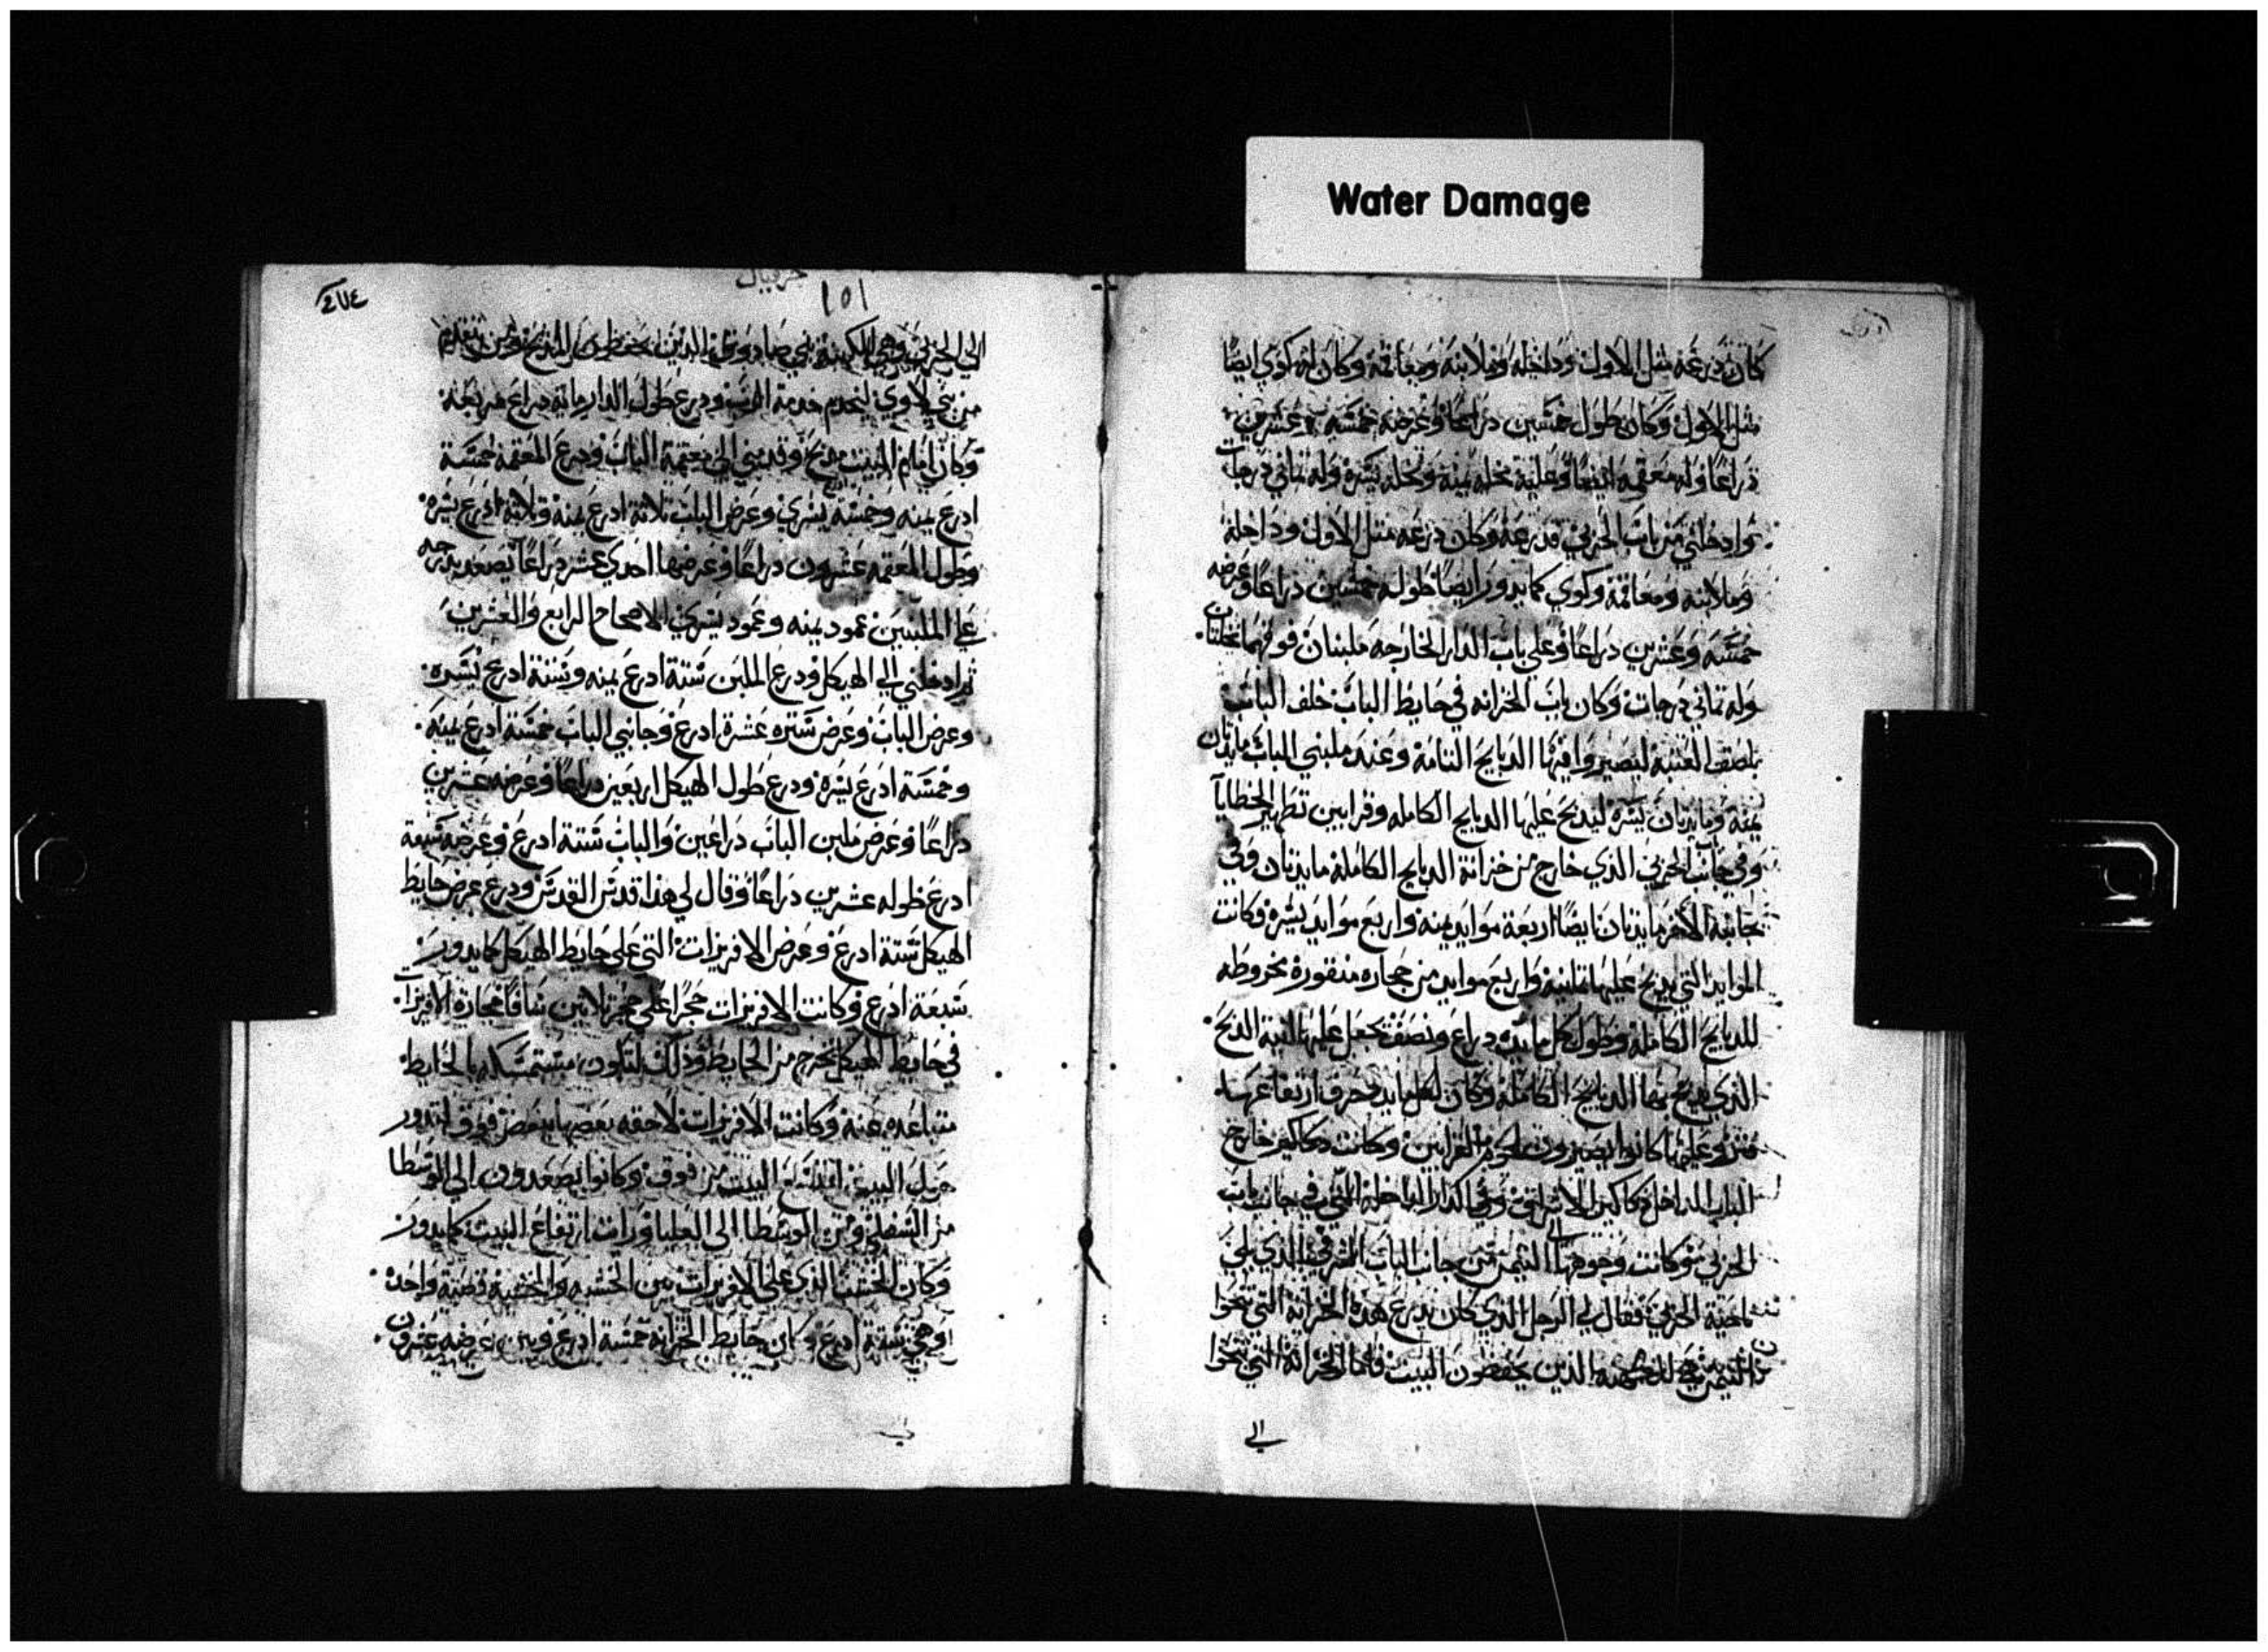 Water Damage
كان درعه مثل الاول وداخله وملابنه ومعاقمه وكان له كوي ايضًا
مثل الاول وكان طول خمسين دراعًا وعرضه خمسه وعشرين
دراعًا وله معقمه ايضًا وعليه نخله يمنه ونخله يسره وله تماني درجات
وادخلني من باب الجربي قدرعه وكان درعه مثل الاول وداخله
وملابنه ومعاقمه وكوي كما يدور ايضًا طوله خمسين دراعًا وعرضه
خمسه وعشرين دراعًا وعلي باب الدار الخارجه ملبنان فوقهما نخلتان
وله تماني درجات وكان باب الخزانه في حايط الباب خلف الباب
بلصق العتبه ليصيروا فيها الدبايح التامه وعند ملبني الباب مايدتان
يمنه ومايدتان يسره ليدبح عليها الدبايح الكامله وقرابين تطهير الخطايا
وفي جانب الجربي الذي خارج من خزانة الدبايح الكامله مايدتان وفي
جانبه الاخر مايدتان ايضًا اربعة موايد يمنه واربع موايد يسره فكانت
الموايد التي يدبح عليها تمانيه واربع موايد من حجاره منقورة مخروطه
للدبايح الكامله وطول كل مايده دراع ونصف يجعل عليها انية الدبح
الذي يدبح بها الدبايح الكامله وكان لكل مايده حرف ارتفاعها
فتر وعليها كانوا يصيرون لحوم القرابين وكانت دكاكين خارج
الباب الداخل دكاكين الاشراف وفي الدار الداخله التي في جانب باب
الجربي وكانت وجوهها الي التيمن من جانب الباب الشرقي الذي يلي
ناحية الجربي فقال لي الرجل الذي كان يدرع هذه الخزانة التي نحوا
التيمن للكهنه الذين يحفظون البيت فاما الخزانة التي نحوا
الي
حزقيال
١٥١
٤٧٤
الي الجربي فهي للكهنة بني صادوق الذين يحفظون المدبح ومن يتقدم
من بني لاوي ليخدم خدمة الرب ودرع طول الدار ماية دراع مربعه
وكان امام البيت مدبح وقدمني الي معقمة الباب ودرع المعقمه خمسة
ادرع يمنه وخمسه يسري وعرض الباب تلاتة ادرع يمنه وتلاته ادرع يسره
وطول المعقمه عشرون دراعًا وعرضها احدي عشر دراعًا يصعد بدرجه
علي الملبنين عمود يمنه وعمود يسري الاصحاح الرابع والعشرين
ثم ادخلني الي الهيكل ودرع الملبن ستة ادرع يمنه وستة ادرع يسره
وعرض الباب وعرض ستره عشرة ادرع وجانبي الباب خمسة ادرع يمنه
وخمسة ادرع يسره ودرع طول الهيكل اربعين دراعًا وعرضه عشرين
دراعًا وعرض ملبن الباب دراعين والباب ستة ادرع وعرضه سبعة
ادرع طوله عشرين دراعًا وقال لي هذا قدس القدس ودرع عرض حايط
الهيكل ستة ادرع وعرض الافريزات التي علي حايط الهيكل كما يدور
سبعة ادرع وكانت الافريزات حجرًا علي حجر تلاتين سافًا حجارة الافريزات
في حايط الهيكل تخرج من الحايط وذلك لتكون مستمسكه بالحايط
متباعده عنه وكانت الافريزات لاحقه بعضها ببعض فوق لتدور
حول البيت لتتسع البيت من فوق وكانوا يصعدون الي الوسطا
من السفلي ومن الوسطا الي العليا ورايت ارتفاع البيت كما يدور
وكان الخشب الذي علي الافريزات بين الخشبه والخشبه قصبة واحده
وهي ستة ادرع وكان حايط الخزانه خمسة ادرع وبين عرضه عشرون